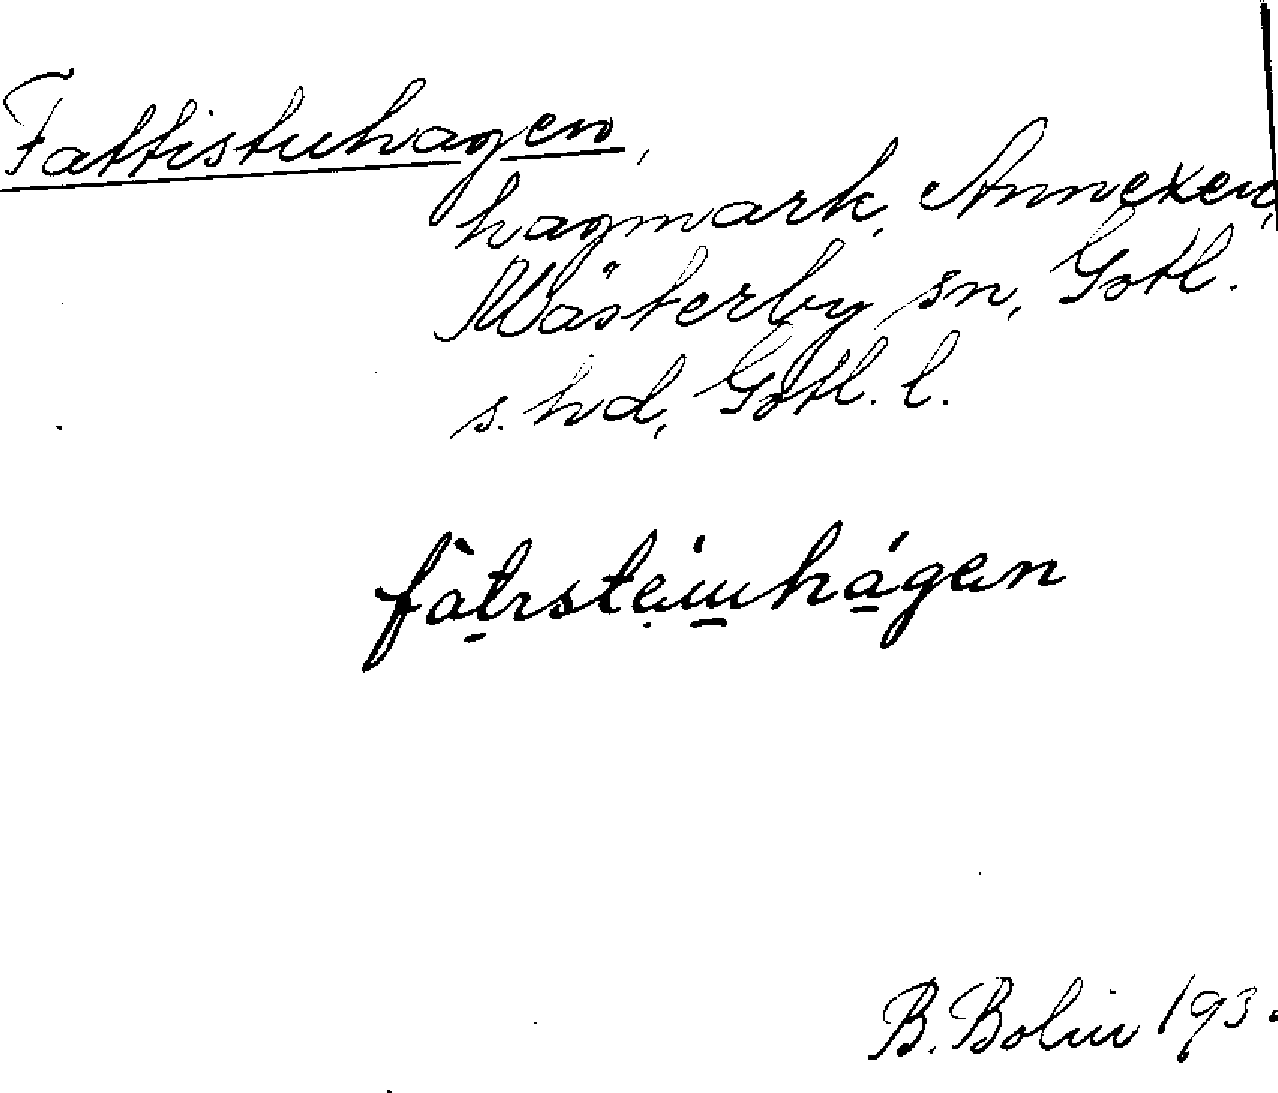 Fattistuhagen,
hagmark, Annexen,
Västerby sn, Gotl.
s. hd, Gotl. l.
B. Bolin 193